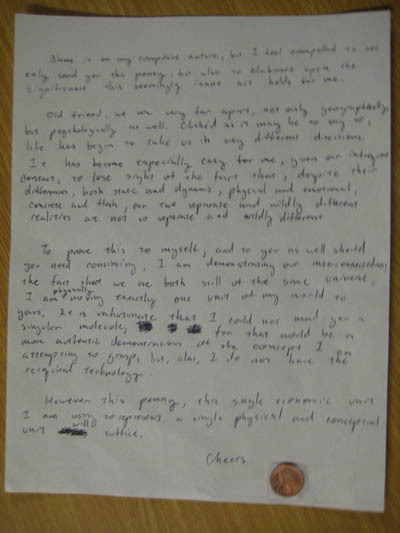 Blame it on my compulsive nature, but I feel compelled to not
only send you this penny, but also to elaborate upon the
significance this seemingly inane act holds for me.
Old friend, we are very far apart, not only geographically
but psychologically as well. Clichéd as it may be to say so,
life has begun to take us in very different directions.
It has become especially easy for me, given our infrequent
contact, to lose sight of the fact that, despite their
differences, both static and dynamic, physical and emotional,
concrete and flesh, our two separate and wildly different
realities are not so separate and wildly different
To prove this to myself, and to you as well should
you need convincing, I am demonstrating our interconnectedness
the fact that we are both still of the same universe,
I am physically moving exactly one unit of my world to
yours. It is unfortunate that I could not mail you a
singular molecule, for that would be a
more authentic demonstration of the concept I am
attempting to grasp, but, alas, I do not have the
required technology.
However this penny, this single economic unit
I am using to represent a single physical and conceptual
unit will suffice.
Cheers